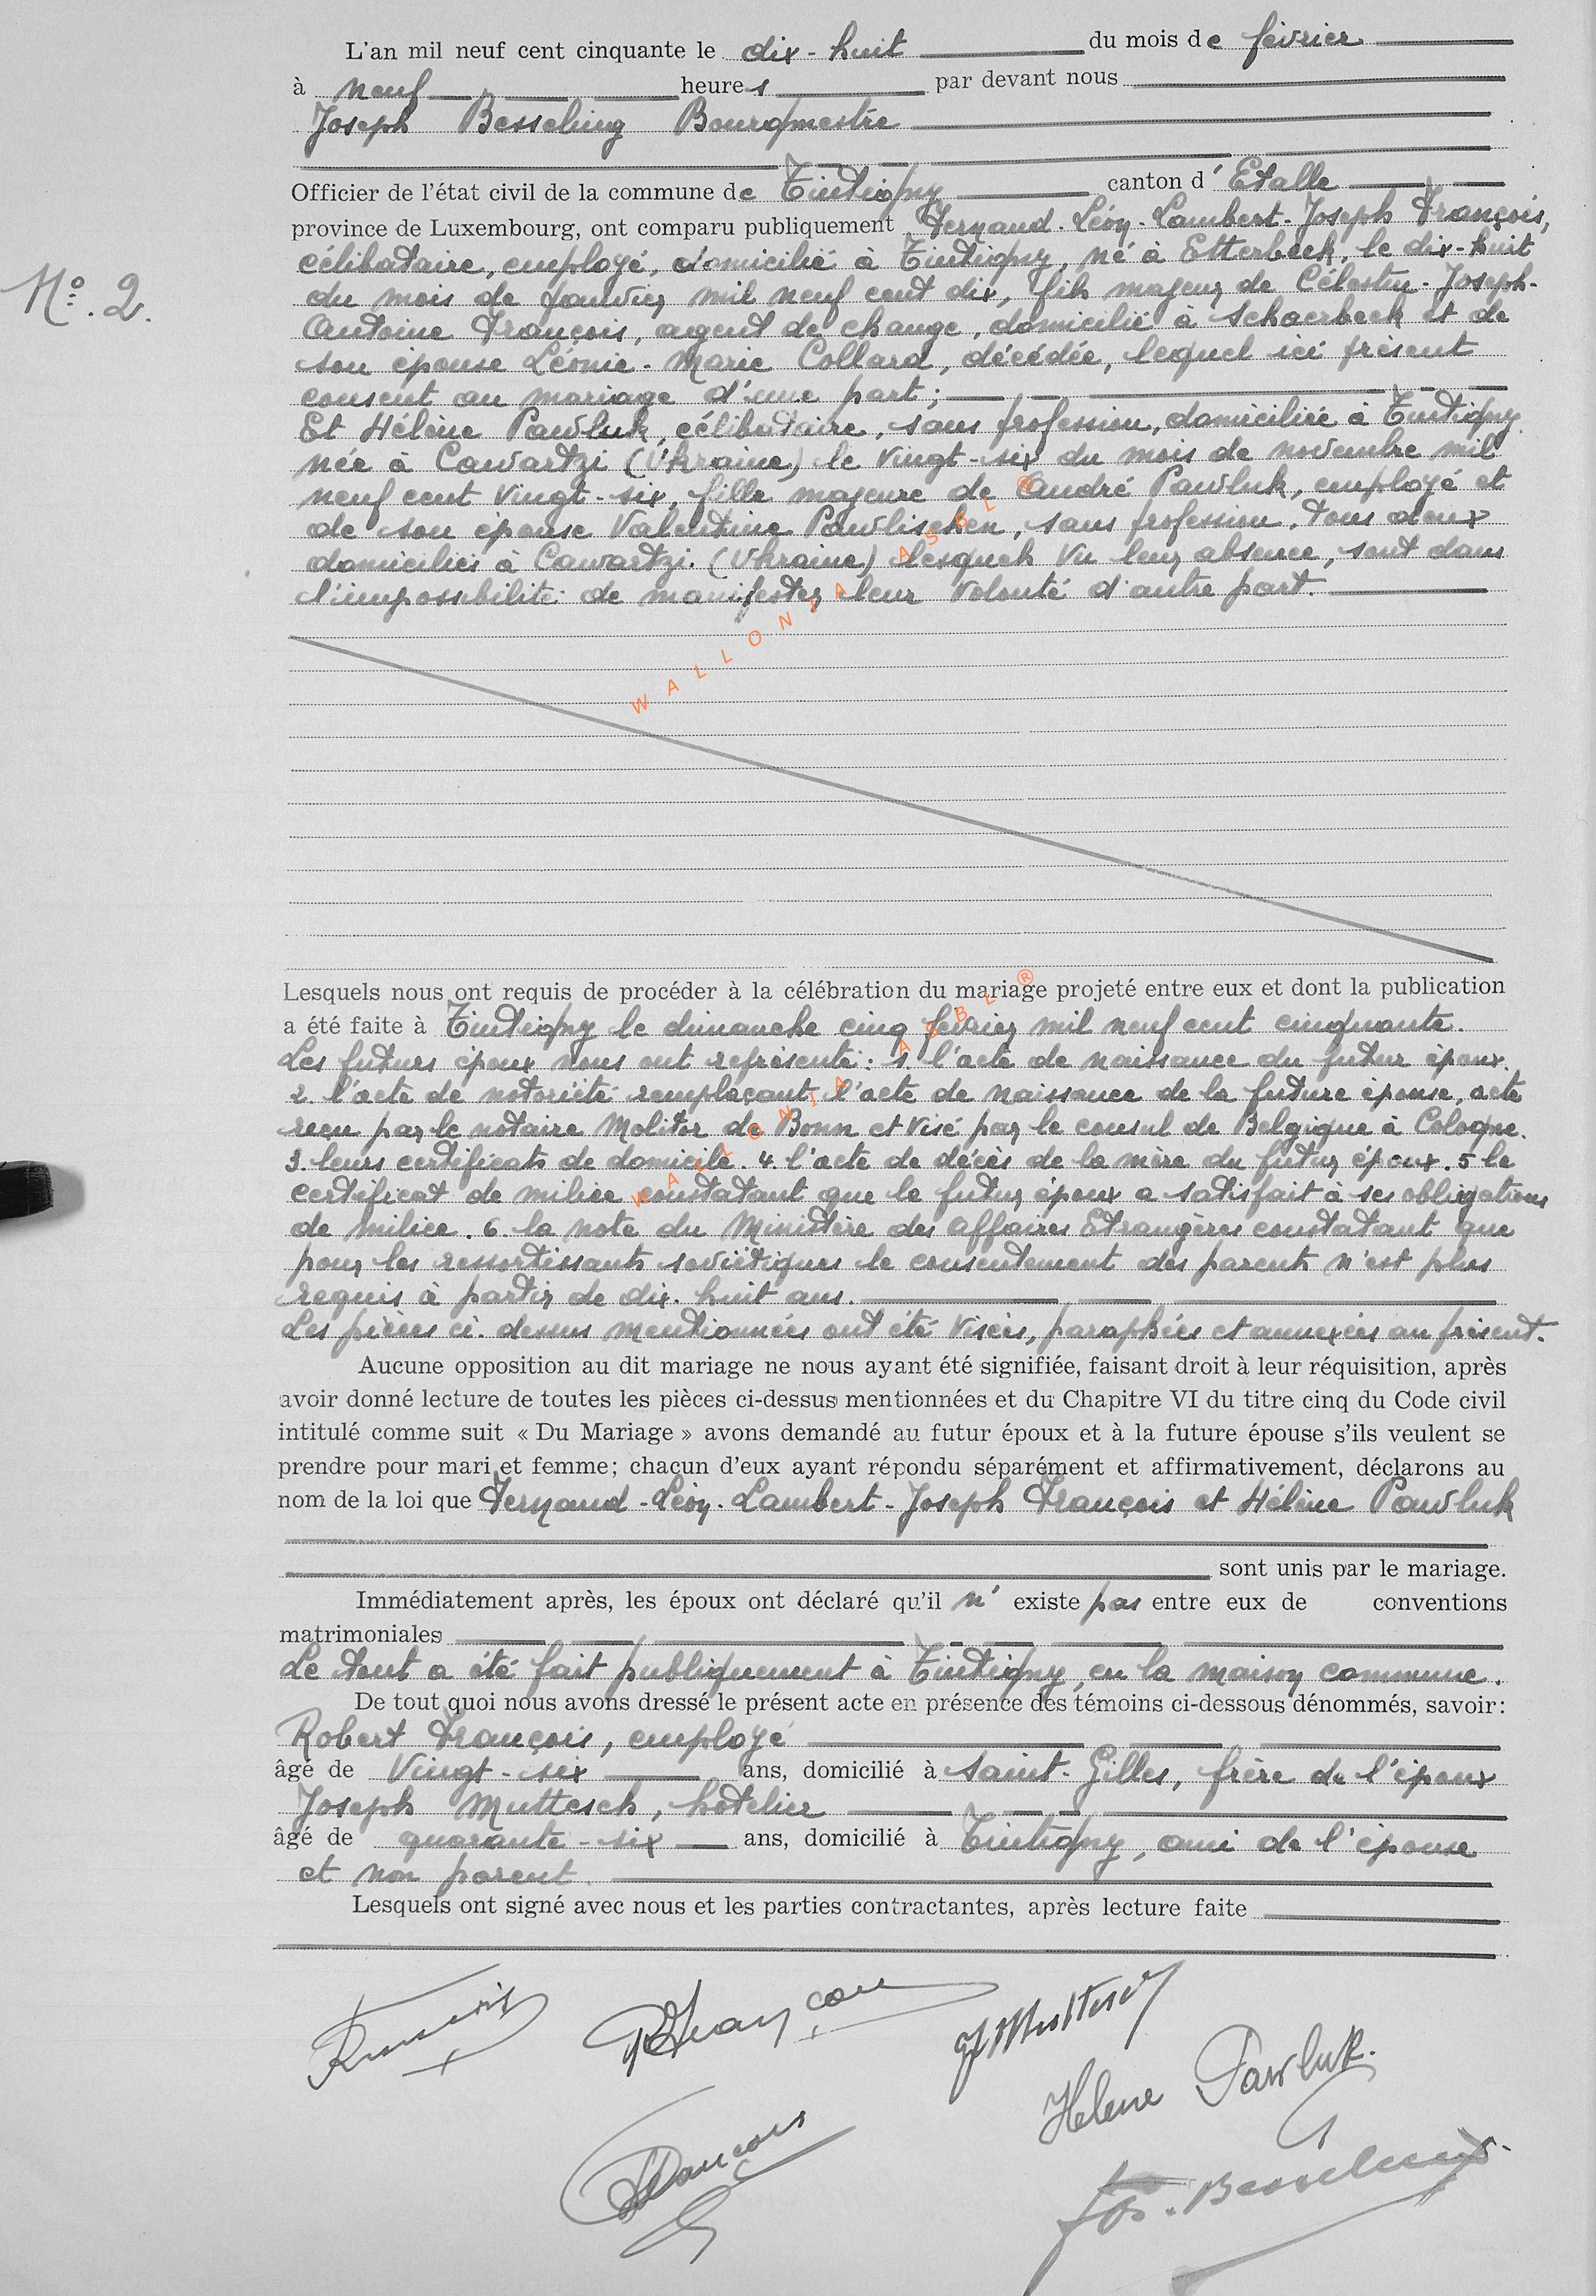 L'an mil neuf cent cinquante le dix-huit du mois de février
à neuf heures par devant nous
Joseph Besseling Bourgmestre
Officier de l'état civil de la commune de Tintigny canton d'Etalle
province de Luxembourg, ont comparu publiquement Fernand-Léon-Lambert-Joseph François,
célibataire, employé, domicilié à Tintigny, né à Etterbeek, le dix-huit
No. 2.
du mois de janvier mil neuf cent dix, fils majeur de Célestin-Joseph-
Antoine François, agent de change, domicilié à Schaerbeek et de
son épouse Léonie-Marie Collard, décédée, lequel ici présent
consent au mariage d'une part;
Et Hélène Pawluk, célibataire, sans profession, domiciliée à Tintigny
née à Cawartzi (Ukraine) le vingt-six du mois de novembre mil
neuf cent vingt-six, fille majeure de André Pawluk, employé et
de son épouse Valentine Pawlischen, sans profession, tous deux
domiciliés à Cawartzi (Ukraine) lesquels vu leur absence, sont dans
l'impossibilité de manifester leur volonté d'autre part.
WALLONIA ASBL ®
Lesquels nous ont requis de procéder à la célébration du mariage projeté entre eux et dont la publication
a été faite à Tintigny le dimanche cinq février mil neuf cent cinquante.
Les futurs époux nous ont représenté: 1. l'acte de naissance du futur époux.
2. l'acte de notoriété remplaçant l'acte de naissance de la future épouse, acte
reçu par le notaire Molitor de Bonn et visé par le consul de Belgique à Cologne.
3. leurs certificats de domicile. 4. l'acte de décès de la mère du futur époux. 5 le
certificat de milice constatant que le futur époux a satisfait à ses obligations
de milice. 6. la note du Ministère des Affaires Etrangères constatant que
pour les ressortissants soviétiques le consentement des parents n'est plus
requis à partir de dix-huit ans.
Les pièces ci-dessus mentionnées ont été visées, paraphées et annexées au présent.
WALLONIA ASBL ®
Aucune opposition au dit mariage ne nous ayant été signifiée, faisant droit à leur réquisition, après
avoir donné lecture de toutes les pièces ci-dessus mentionnées et du Chapitre VI du titre cinq du Code civil
intitulé comme suit « Du Mariage » avons demandé au futur époux et à la future épouse s'ils veulent se
prendre pour mari et femme; chacun d'eux ayant répondu séparément et affirmativement, déclarons au
nom de la loi que Fernand-Léon-Lambert-Joseph François et Hélène Pawluk
sont unis par le mariage.
Immédiatement après, les époux ont déclaré qu'il n' existe pas entre eux de conventions
matrimoniales
Le tout a été fait publiquement à Tintigny, en la maison commune.
De tout quoi nous avons dressé le présent acte en présence des témoins ci-dessous dénommés, savoir:
Robert François, employé
âgé de vingt-six ans, domicilié à Saint-Gilles, frère de l'époux
Joseph Muttesch, hôtelier
âgé de quarante-six ans, domicilié à Tintigny, ami de l'épouse
et non parent.
Lesquels ont signé avec nous et les parties contractantes, après lecture faite
R François
J Muttesch
Helene Pawluk.
François
Jos. Besseling